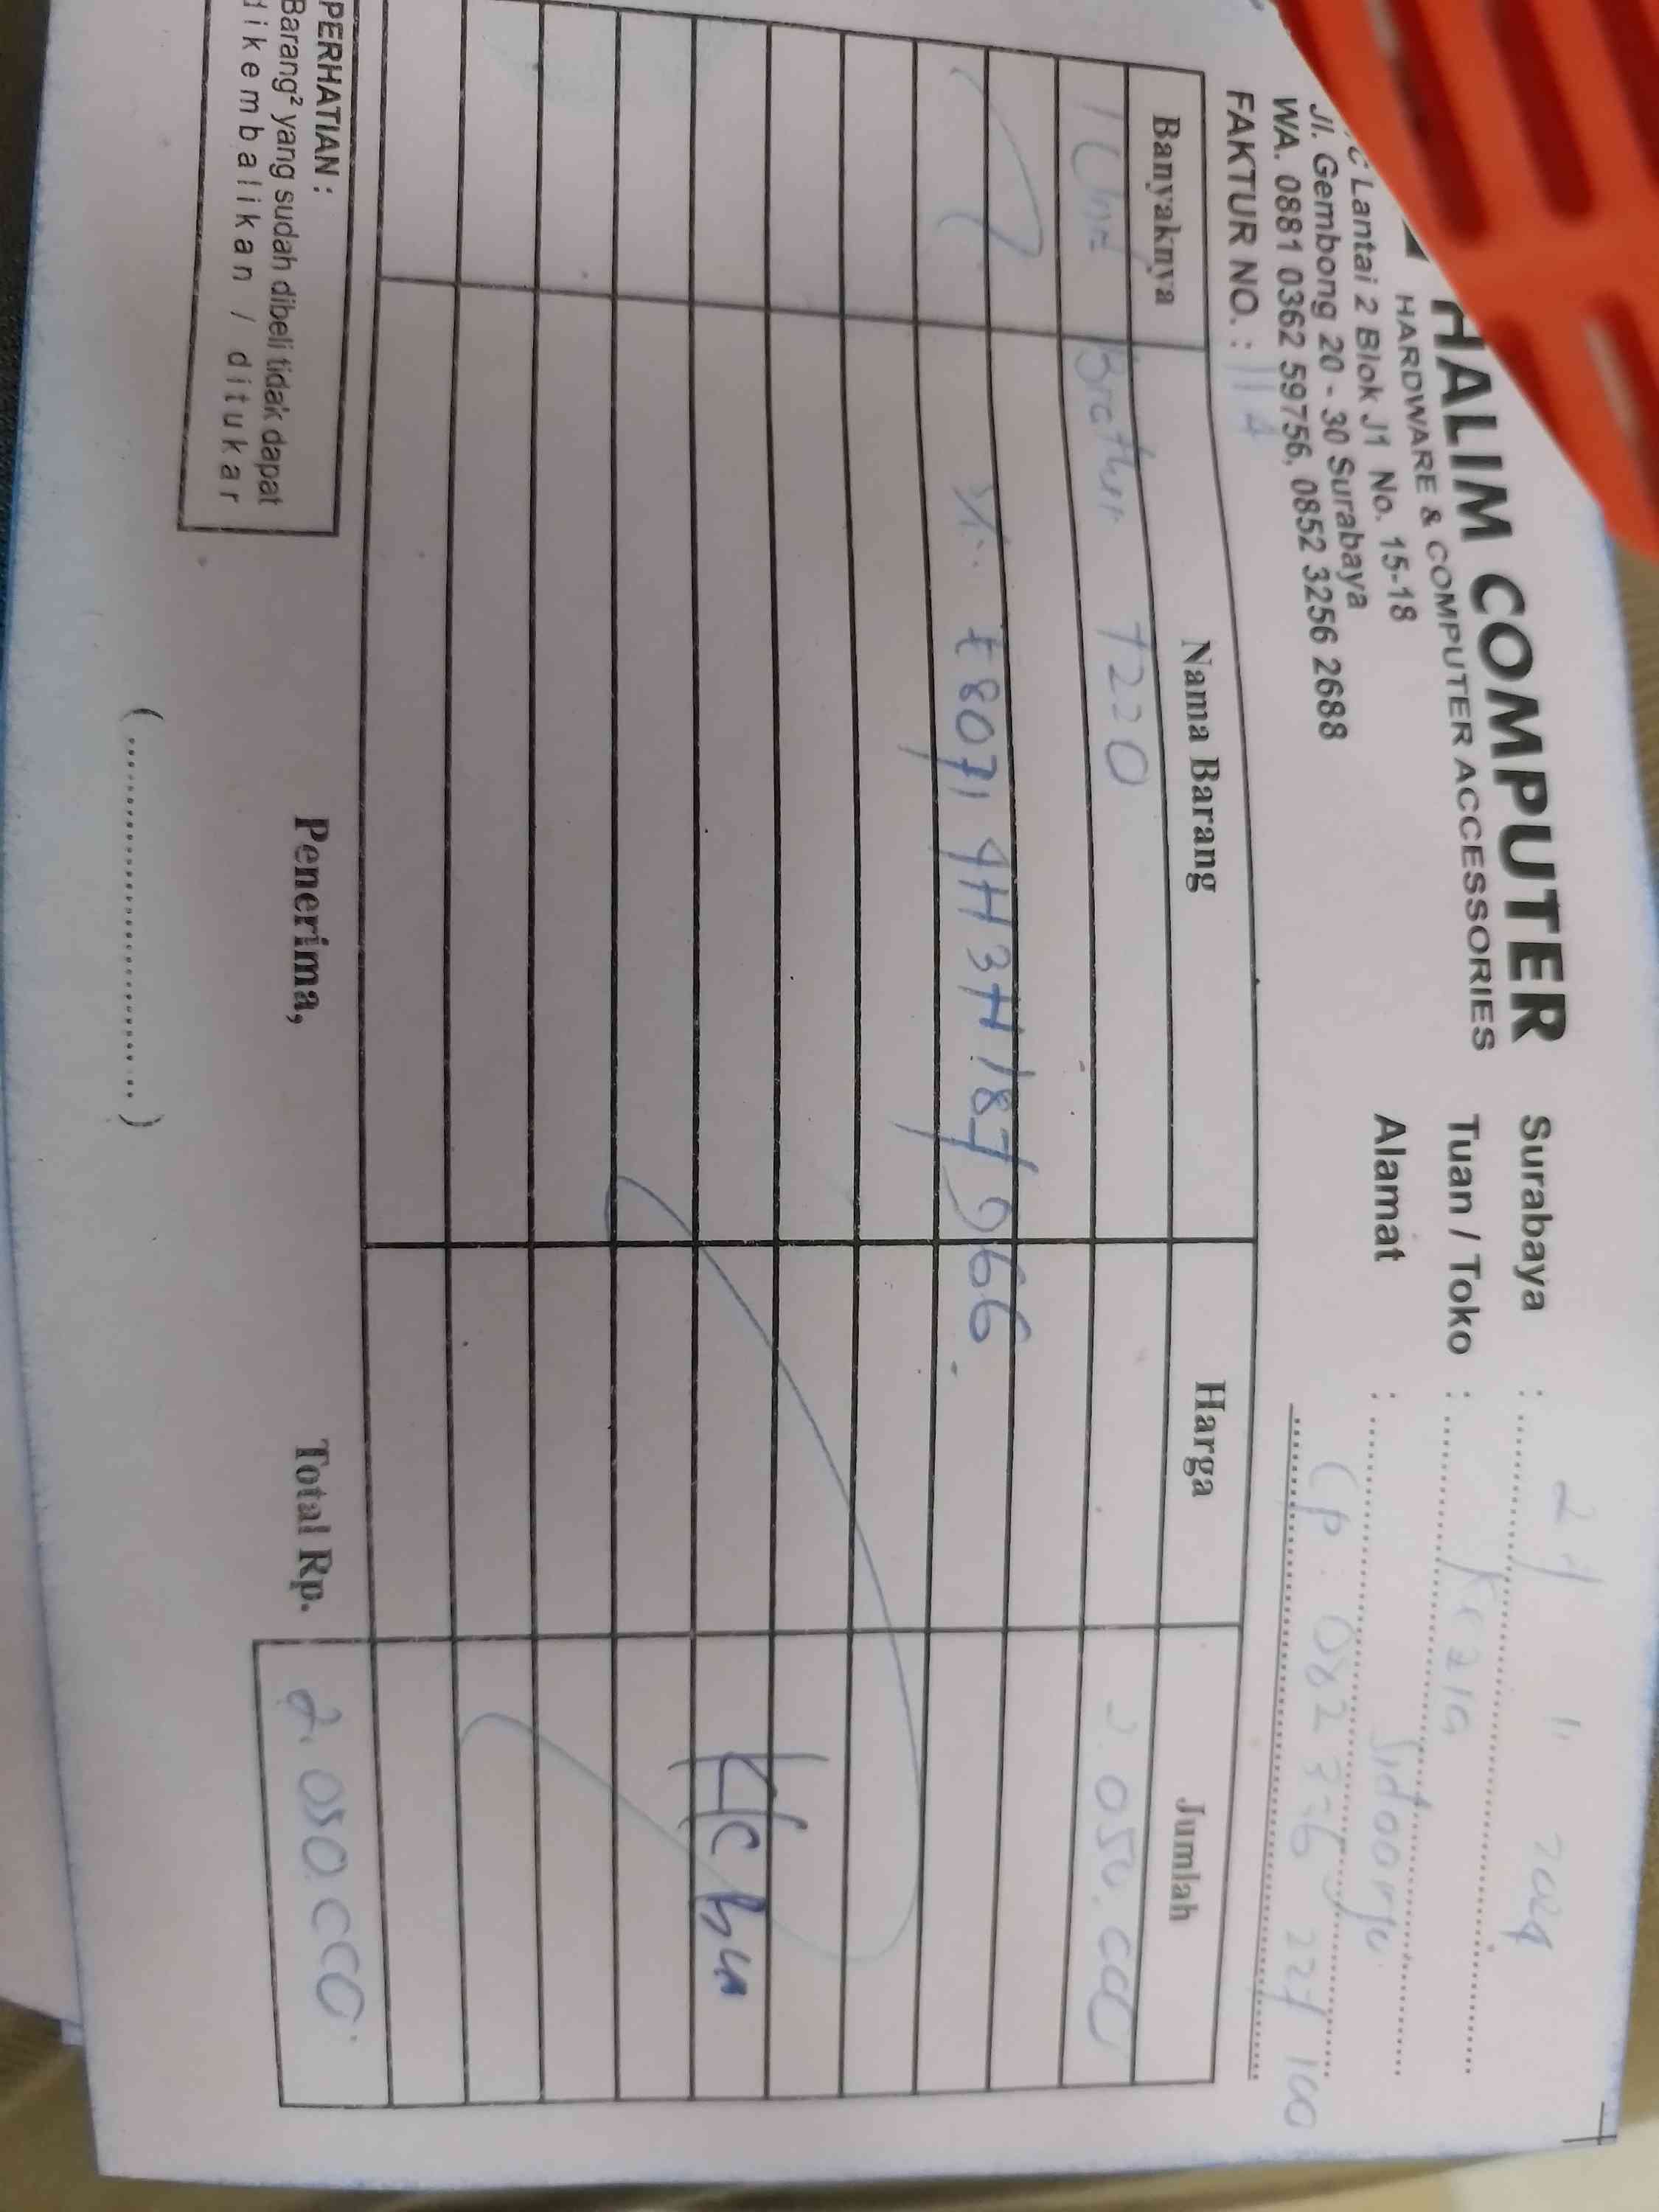 HALIM COMPUTER
HARDWARE & COMPUTER ACCESSORIES
C Lantai 2 Blok J1 No. 15-18
Jl. Gembong 20 - 30 Surabaya
WA. 0881 0362 59756, 0852 3256 2688
FAKTUR NO. :
Surabaya : 11 2024
Tuan / Toko : Kezia
Alamat : Sidoarjo
Banyaknya Nama Barang Harga Jumlah
1 Unit Brother T220 2.050.000
E8071 4H3H187966
PERHATIAN :
Barang² yang sudah dibeli tidak dapat
dikembalikan / ditukar
Penerima,
(..............................)
Total Rp. 2.050.000